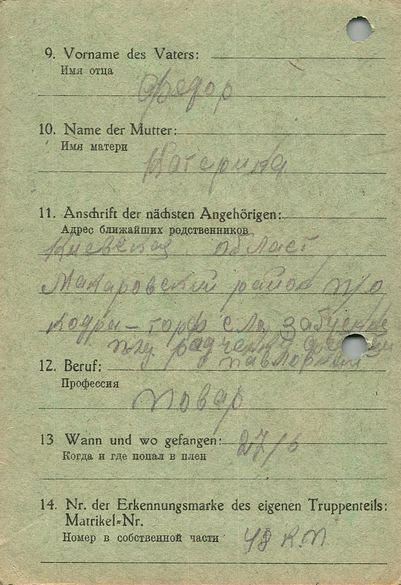 9. Vorname des Vaters:
Имя отца
Федор
10. Name der Mutter:
Имя матери
Катерина
11. Anschrift der nächsten Angehörigen:
Адрес ближайших родственников
Киевская област
Макаровский район п/о
кодра-торф село
12. Beruf:
Профессия
повар
13 Wann und wo gefangen:
Когда и где попал в плен
27/
14. Nr. der Erkennungsmarke des eigenen Truppenteils:
Matrikel-Nr.
Номер в собственной части